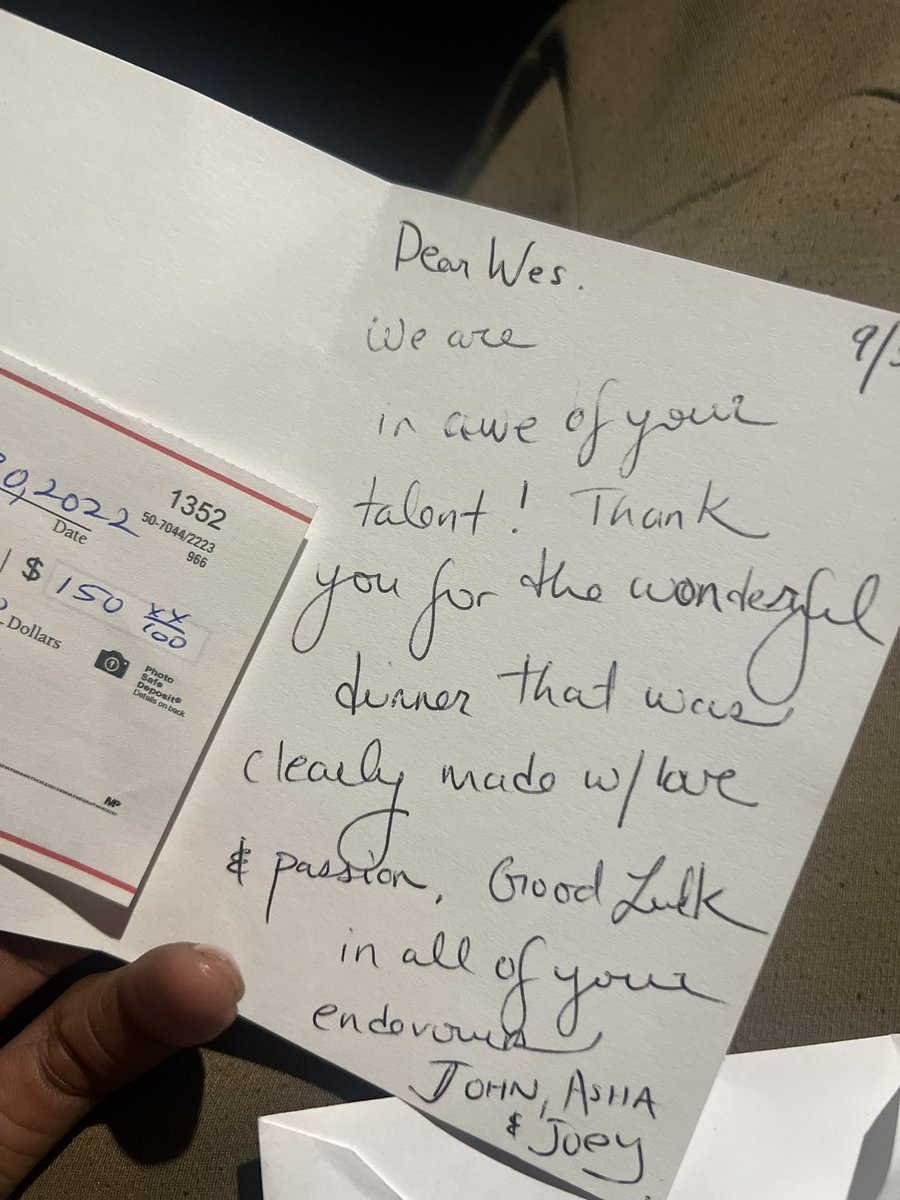 Dear Wes.
9/3
We are
in awe of your
talent! Thank
you for the wonderful
dinner that was
clearly made w/ love
& passion. Good Luck
in all of your
endevours
JOHN, ASHA
& Joey
0, 2022
Date
1352
50-7044/2223
966
$ 150 xx/100
Dollars
Photo
Safe
Deposit®
Details on back
MP